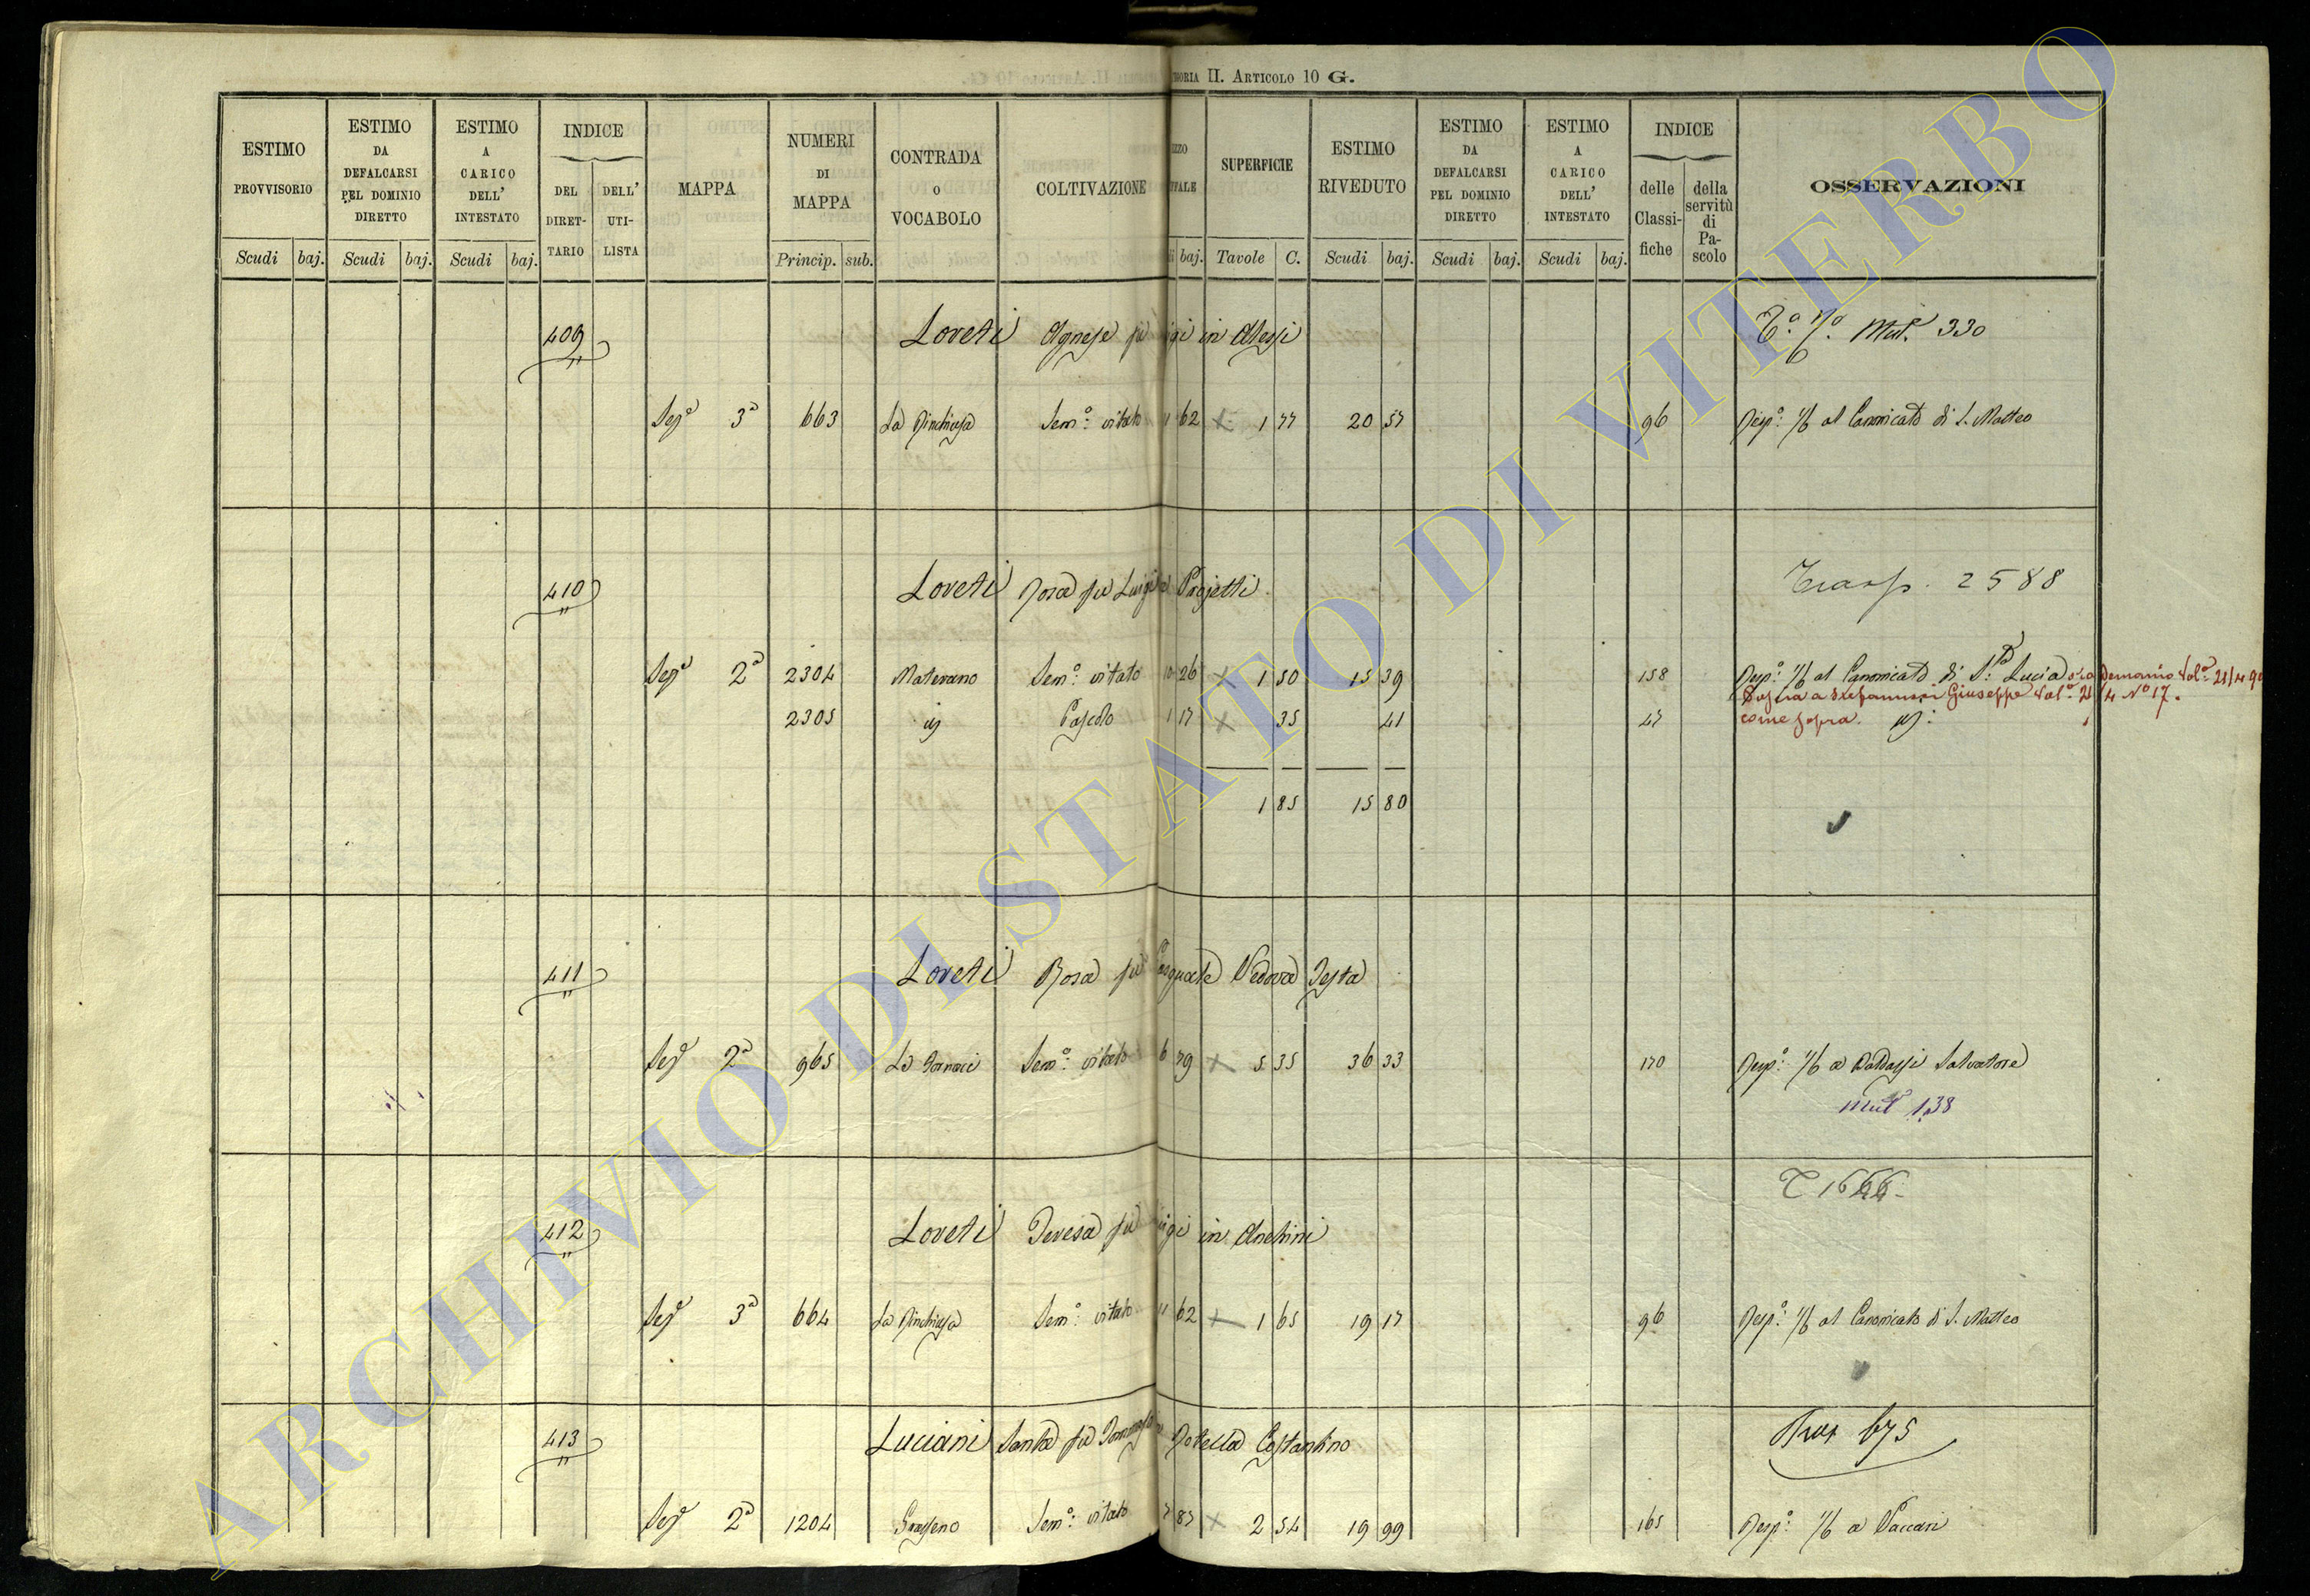 GORIA II. ARTICOLO 10 G.
ESTIMO PROVVISORIO Scudi baj.
ESTIMO DA DEFALCARSI PEL DOMINIO DIRETTO Scudi baj.
ESTIMO A CARICO DELL' INTESTATO Scudi baj.
INDICE DEL DIRET-TARIO DELL' UTI-LISTA
MAPPA
NUMERI DI MAPPA Princip. sub.
CONTRADA O VOCABOLO
COLTIVAZIONE
baj.
SUPERFICIE Tavole C.
ESTIMO RIVEDUTO Scudi baj.
ESTIMO DA DEFALCARSI PEL DOMINIO DIRETTO Scudi baj.
ESTIMO A CARICO DELL' INTESTATO Scudi baj.
INDICE delle Classi-fiche della servitù di Pa-scolo
OSSERVAZIONI
409 Loreti Agnese fu igi in Alessi Mut. 330
Sez. 3a 663 La Rinchiusa Sem.o vitato 62 1 77 20 57 96 Risp. 1/6 al Canonicato di S. Matteo
410 Loreti Rosa fu Luigi Projetti Trasp. 2588
Sez. 2a 2304 Materano Sem.o vitato 10 26 1 50 15 39 158 Risp. 1/6 al Canonicato di S.ta Lucia ora Demanio Vol.o 21/4 90
Giuseppe Vol.o 21/4 No 17.
2305 Pascolo 1 17 35 41 47 come sopra.
1 85 15 80
411 Loreti Rosa fu Pasquale Vedova Testa
Sez. 2a 965 Le Fornaci Sem.o vitato 6 79 5 35 36 33 170 Risp. 1/6 a Baldassi Salvatore
Mut 138
T 1666
412 Loreti Teresa fu igi in Anchini
Sez. 3a 664 La Rinchiusa Sem.o vitato 11 62 1 65 19 17 96 Risp. 1/6 al Canonicato di S. Matteo
413 Luciani Santa fu Rotella Costantino Tras 675
Sez. 2a 1204 Sem.o vitato 7 87 2 54 19 99 165 Risp. 1/6 a Vaccari
ARCHIVIO DI STATO DI VITERBO